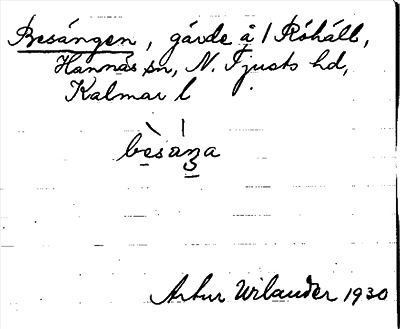 Besängen, gärde å / Röhäll,
Hannäs sn, N. Tjusts hd,
Kalmar l
Artur Wilander 1930